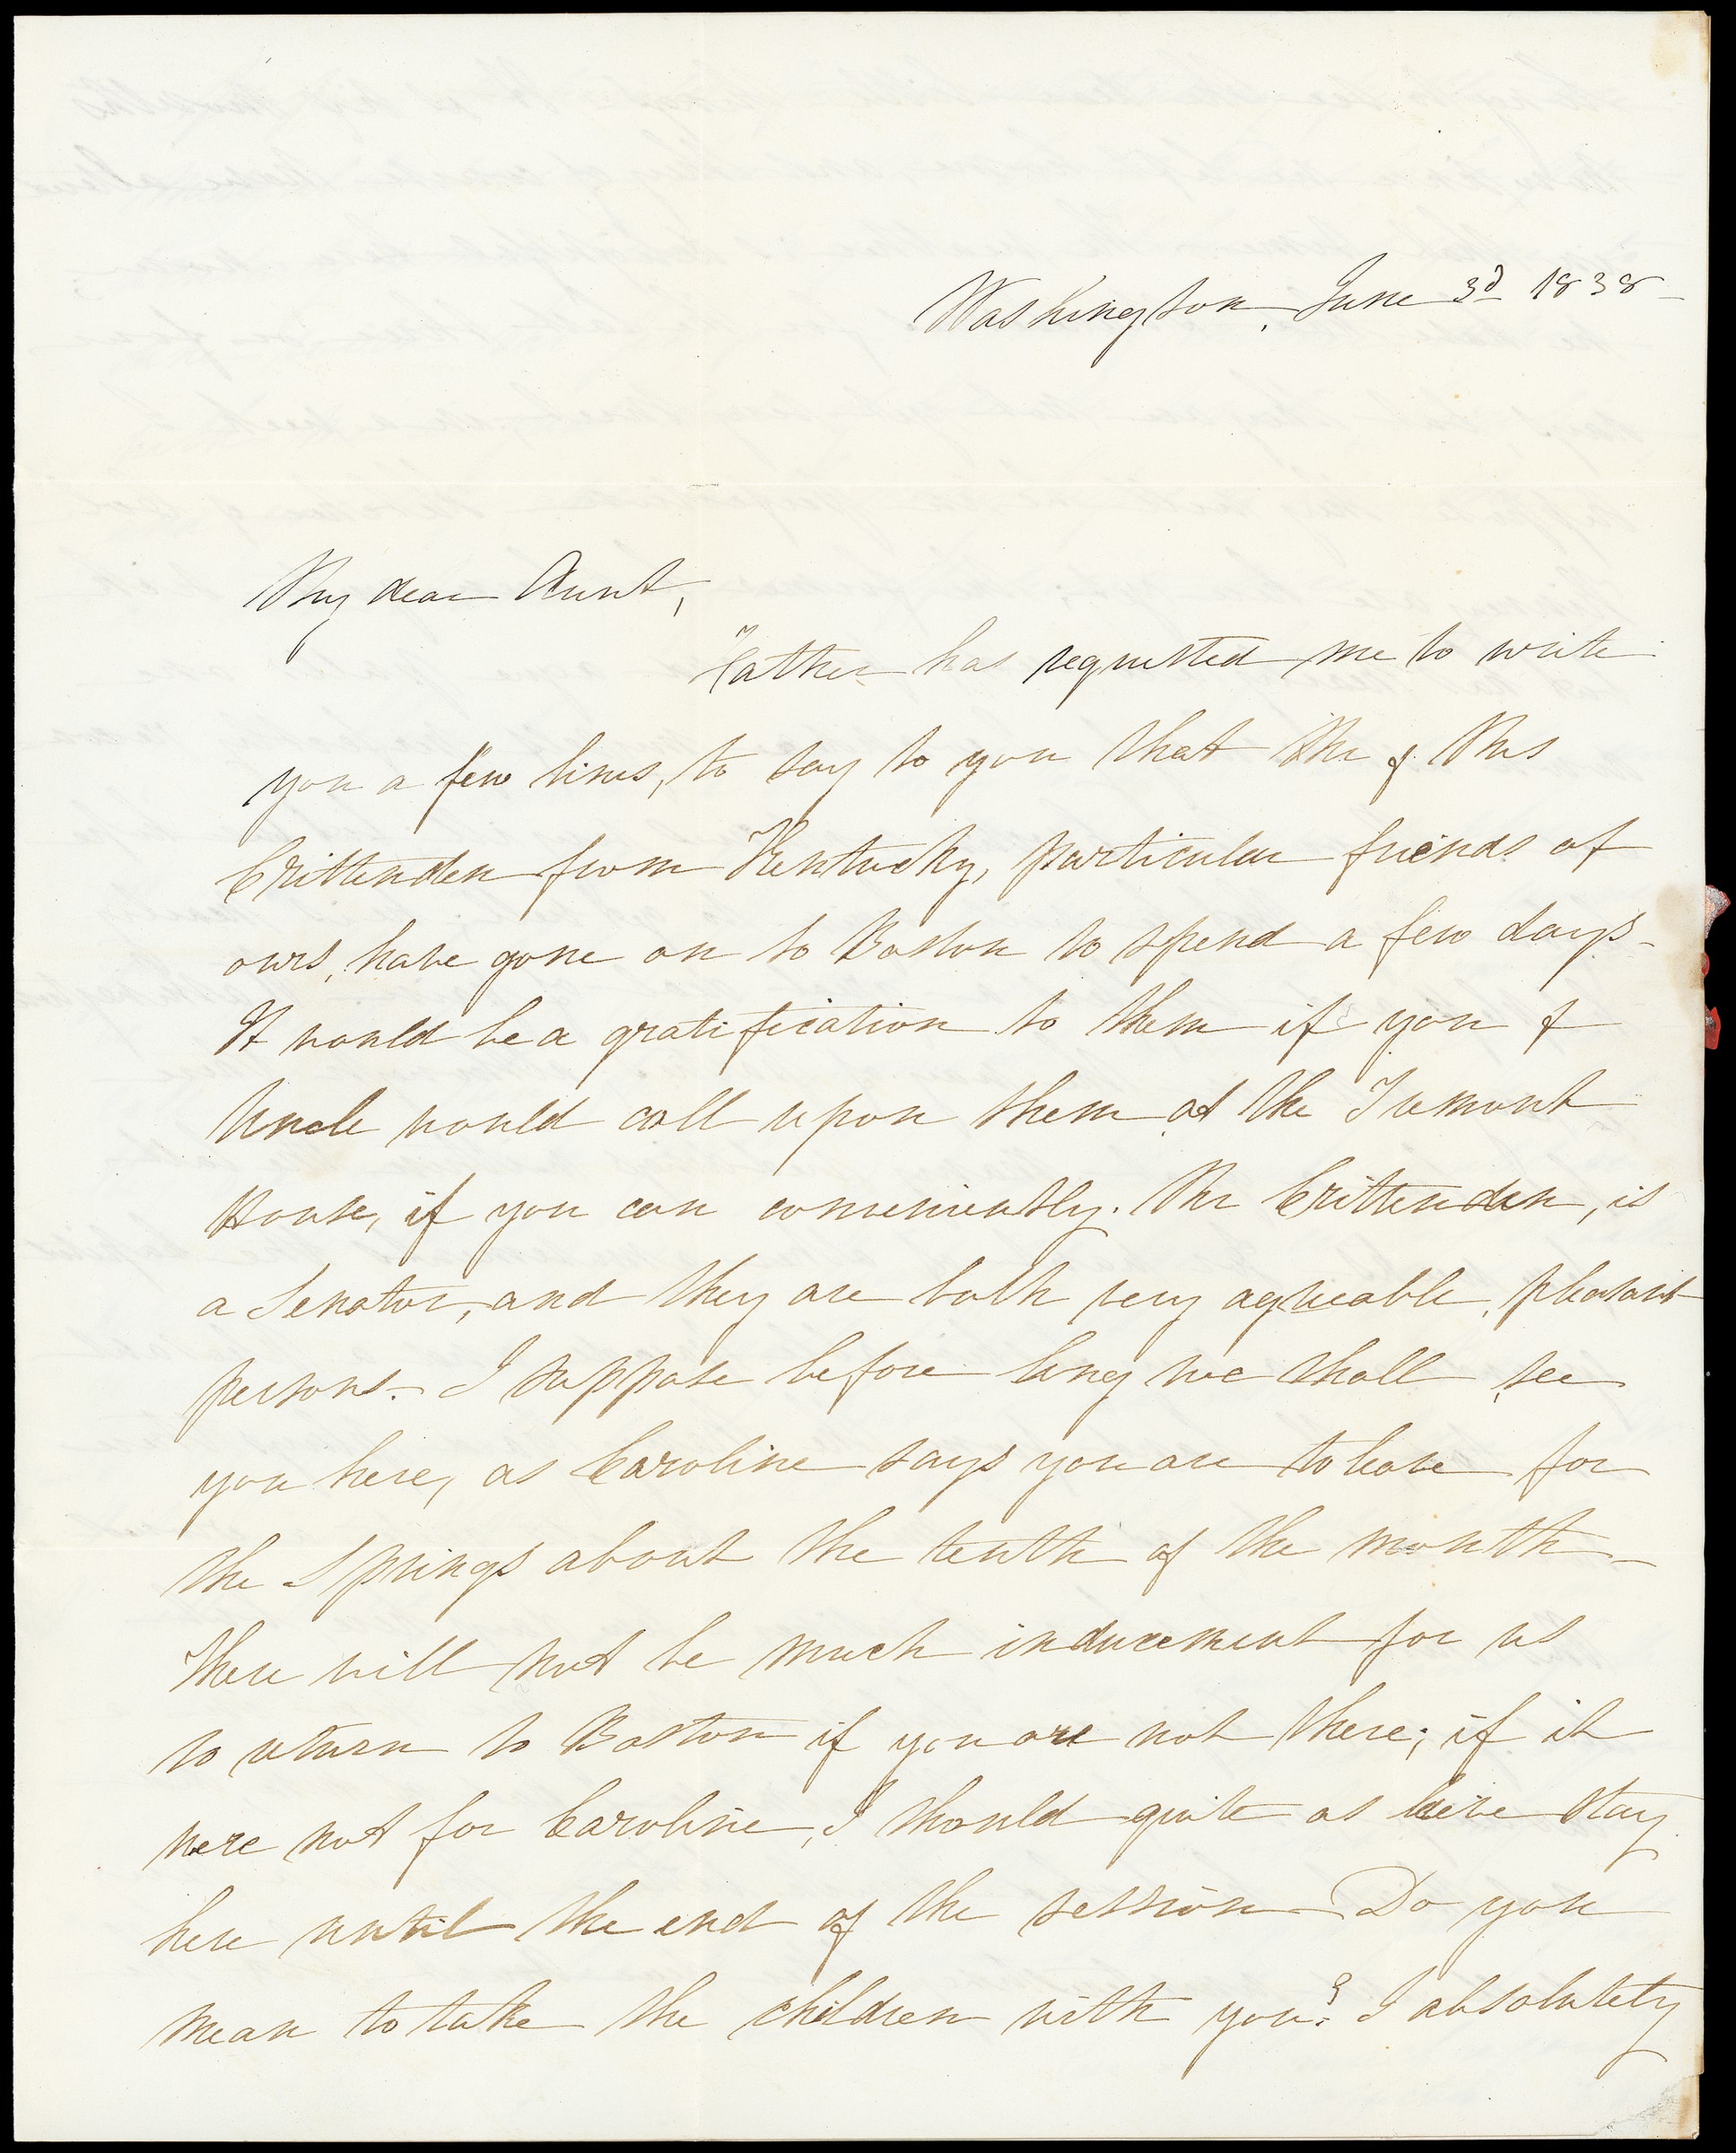 Washington, June 3d 1838-
My dear Aunt,
Father has requested me to write
you a few lines, to say to you that Mr & Mrs
Crittenden from Kentucky, particular friends of
ours, have gone on to Boston to spend a few days-
It would be a gratification to them if you &
Uncle would call upon them at the Tremont
House, if you can conveniently. Mr Crittenden, is
a Senator, and they are both very agreeable, pleasant
persons- I suppose before long we shall see
you here, as Caroline says you are to leave for
the Springs about the tenth of the month-
There will not be much inducement for us
to return to Boston if you are not there; if it
were not for Caroline, I should quite as leive stay
here until the end of the session- Do you
mean to take the children with you? I absolutely